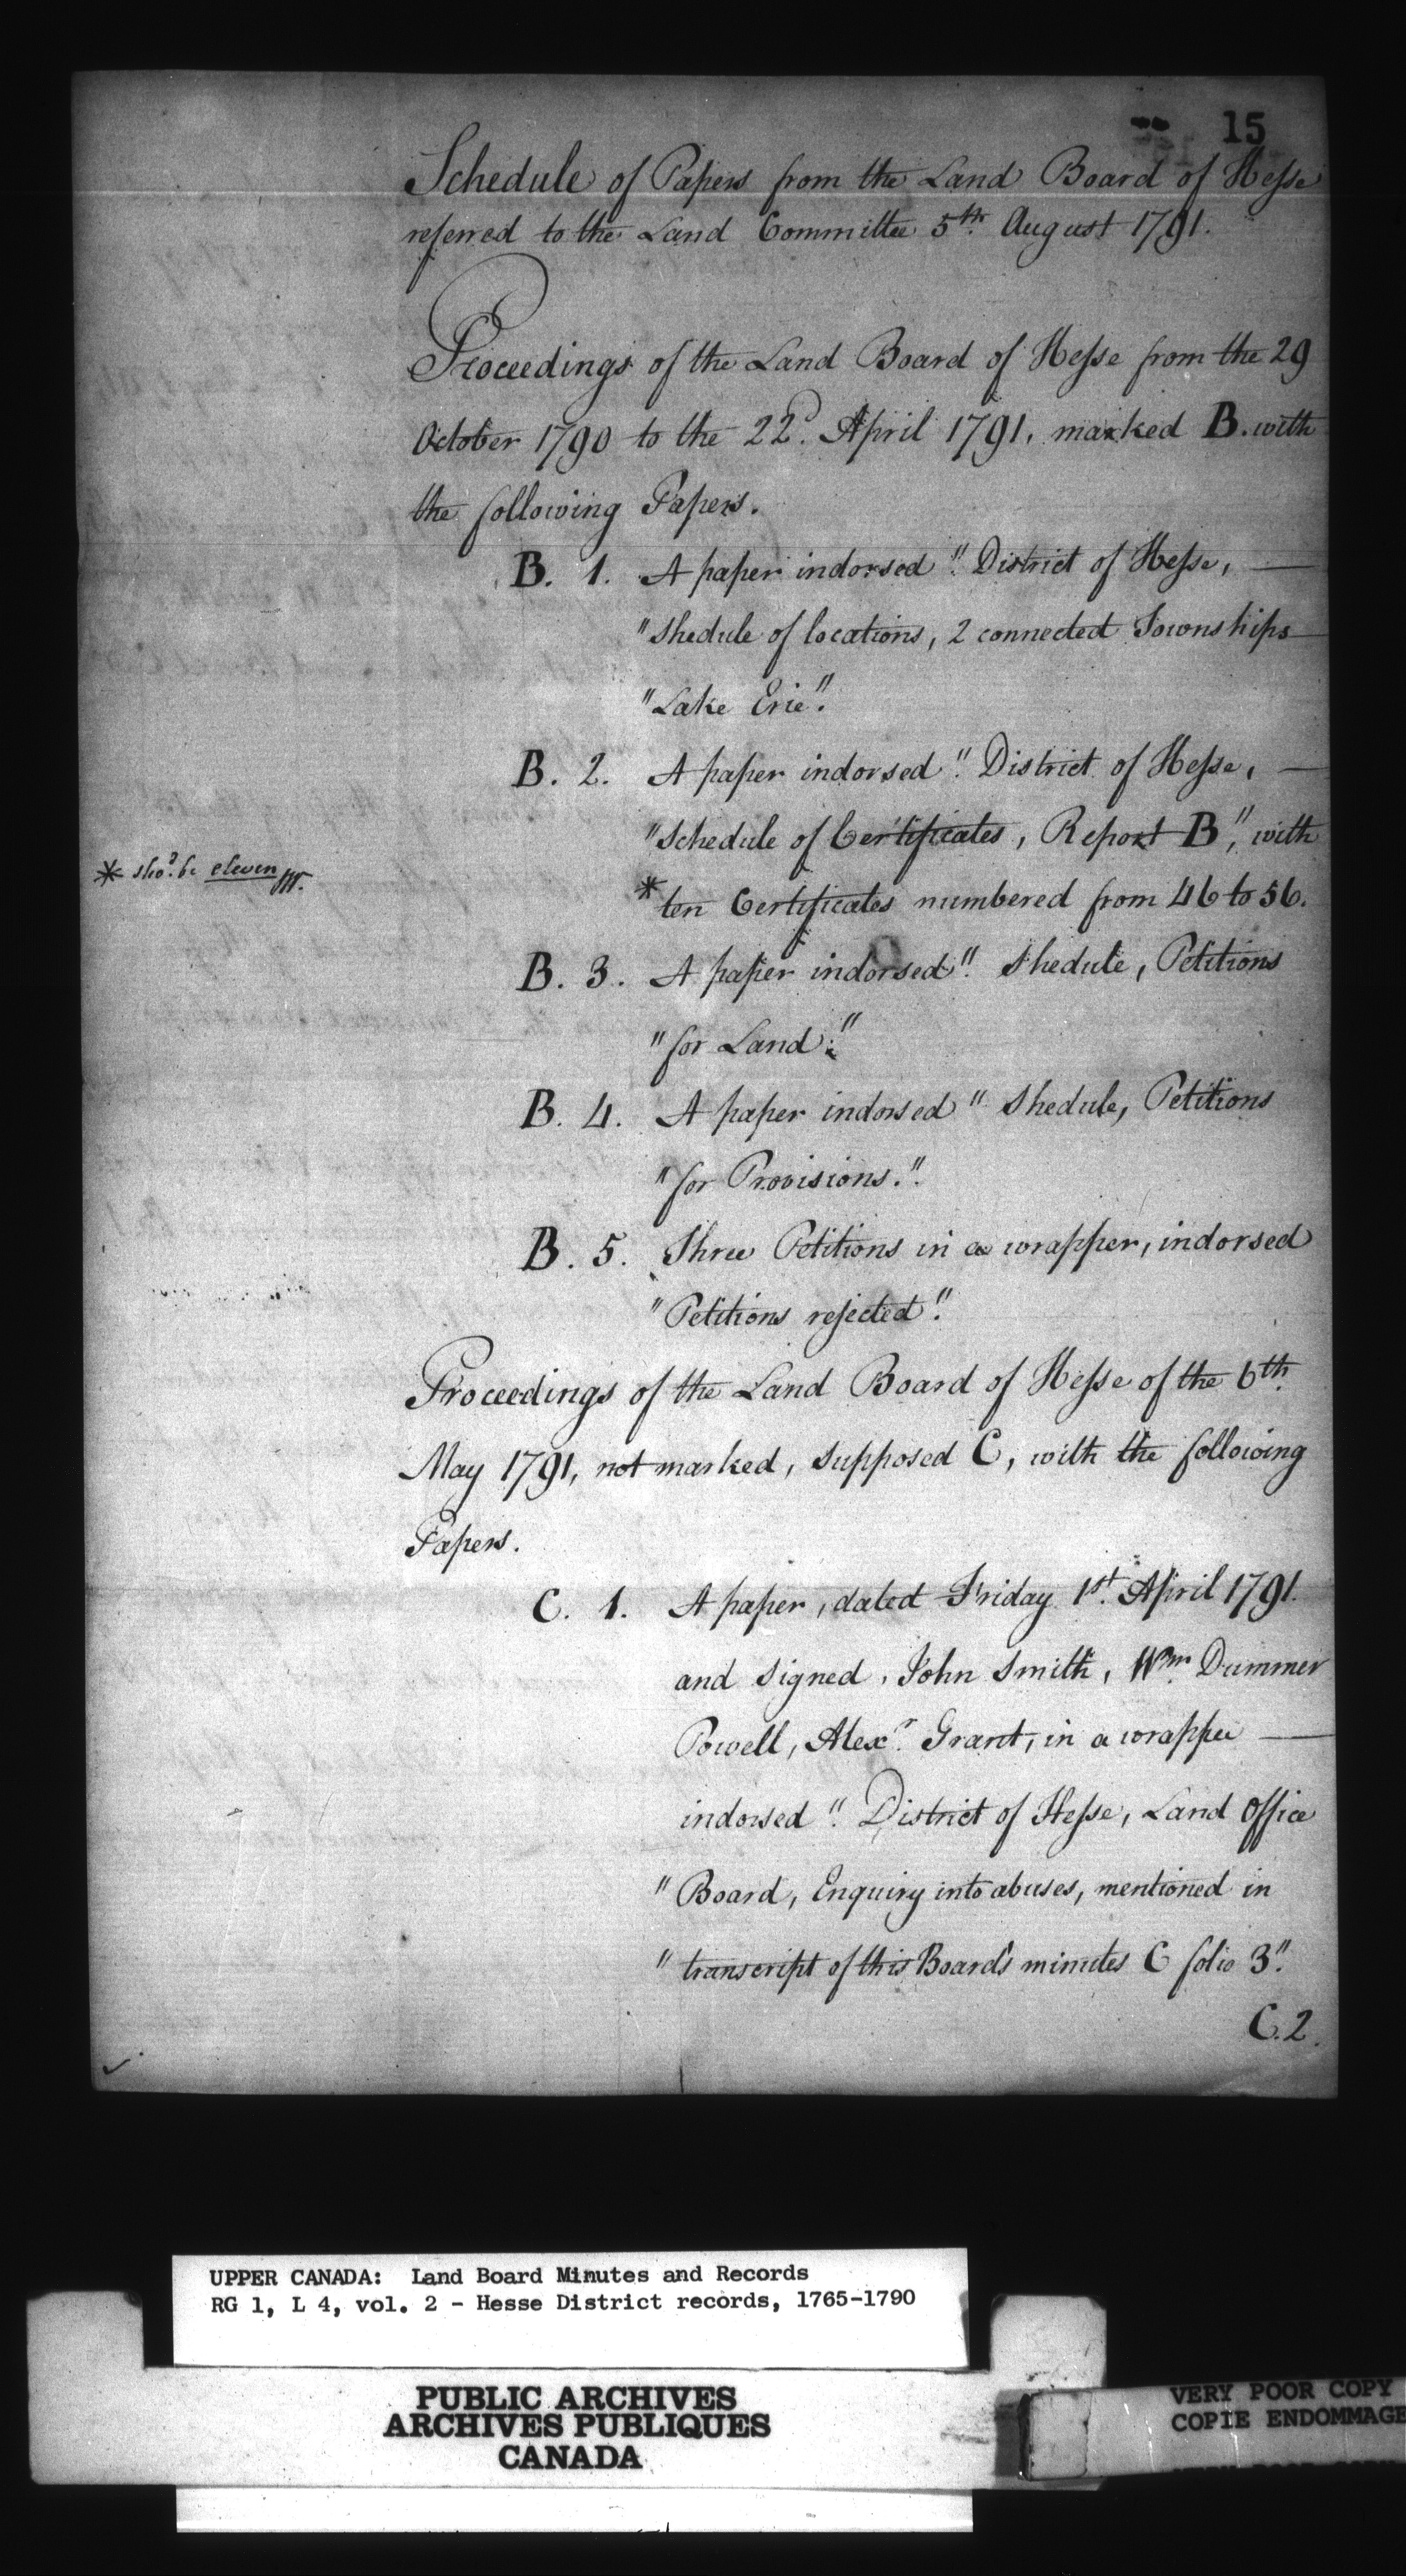 15
Schedule of Papers from the Land Board of Hesse
referred to the Land Committee 5th. August 1791.
Proceedings of the Land Board of Hesse from the 29
October 1790 to the 22d. April 1791. marked B. with
the following Papers.
B. 1. A paper indorsed "District of Hesse, —
"Shedule of locations, 2 connected Townships
"Lake Erie".
B. 2. A paper indorsed "District of Hesse, —
"Schedule of Certificates, Report B," with
* ten Certificates numbered from 46 to 56.
* shod. be eleven
B. 3. A paper indorsed "Shedule, Petitions
"for Land."
B. 4. A paper indorsed "Shedule, Petitions
"for Provisions."
B. 5. Three Petitions in a wrapper, indorsed
"Petitions rejected".
Proceedings of the Land Board of Hesse of the 6th.
May 1791, not marked, supposed C, with the following
Papers.
C. 1. A paper, dated Friday 1st. April 1791.
and signed, John Smith, Wm. Dummer
Powell, Alexr. Grant, in a wrapper —
indorsed "District of Hesse, Land Office
"Board, Enquiry into abuses, mentioned in
"transcript of this Board's minutes C folio 3".
C. 2.
UPPER CANADA: Land Board Minutes and Records
RG 1, L 4, vol. 2 - Hesse District records, 1765-1790
PUBLIC ARCHIVES
ARCHIVES PUBLIQUES
CANADA
VERY POOR COPY
COPIE ENDOMMAGE